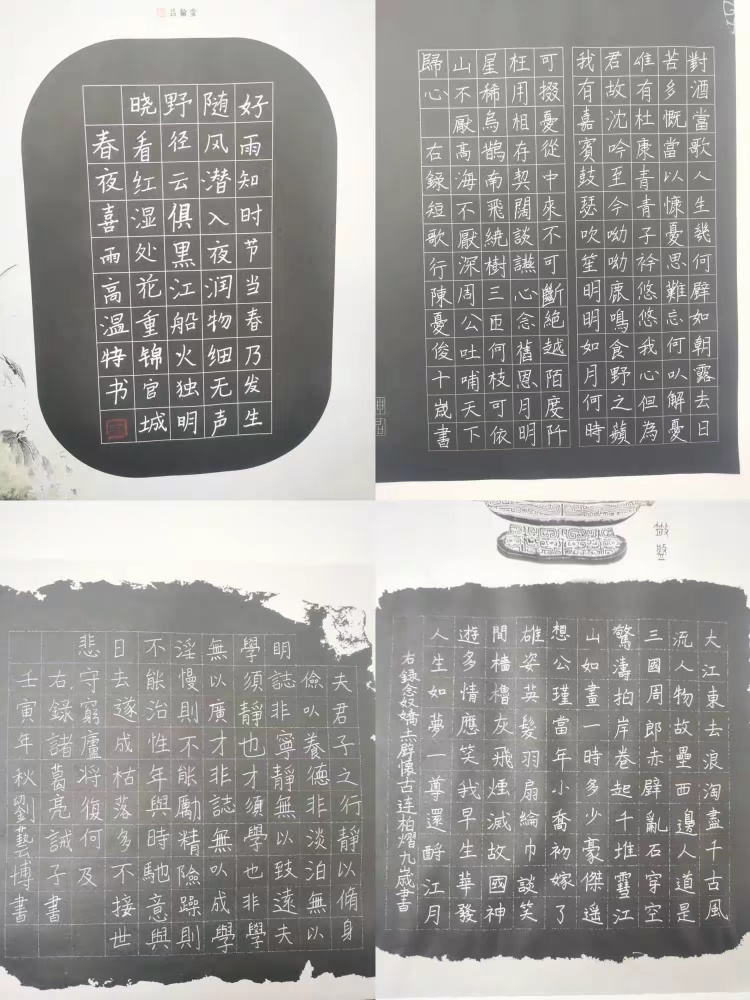 好雨知时节当春乃发生
随风潜入夜润物细无声
野径云俱黑江船火独明
晓看红湿处花重锦官城
春夜喜雨高温特书
對酒當歌人生幾何譬如朝露去日
苦多慨當以慷憂思難忘何以解憂
唯有杜康青青子衿悠悠我心但為
君故沈吟至今呦呦鹿鳴食野之蘋
我有嘉賓鼓瑟吹笙明明如月何時
可掇憂從中來不可斷絕越陌度阡
枉用相存契闊談讌心念舊恩月明
星稀烏鵲南飛繞樹三匝何枝可依
山不厭高海不厭深周公吐哺天下
歸心 右錄短歌行陳憂俊十歲書
夫君子之行靜以脩身
儉以養德非淡泊無以
明誌非寧靜無以致遠夫
學須靜也才須學也非學
無以廣才非誌無以成學
淫慢則不能勵精險躁則
不能治性年與時馳意與
日去遂成枯落多不接世
悲守窮廬將復何及
右錄諸葛亮誡子書
壬寅年秋劉藝博書
大江東去浪淘盡千古風
流人物故壘西邊人道是
三國周郎赤壁亂石穿空
驚濤拍岸卷起千堆雪江
山如畫一時多少豪傑遥
想公瑾當年小喬初嫁了
雄姿英髮羽扇綸巾談笑
間檣櫓灰飛煙滅故國神
遊多情應笑我早生華發
人生如夢一尊還酹江月
右錄念奴嬌赤壁懷古连柏熠九歲書